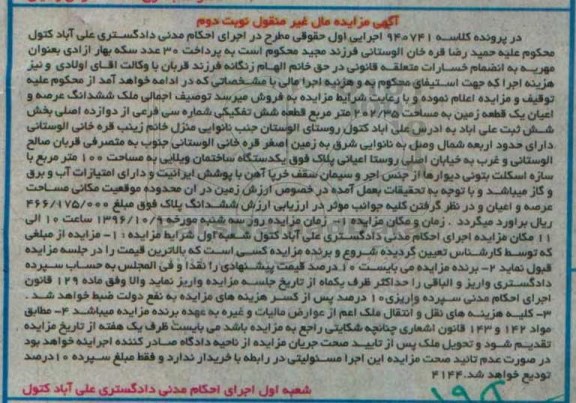 آگهی مزایده مال غیر منقول نوبت دوم
در پرونده کلاسه 940741 اجرایی اول حقوقی مطرح در اجرای احکام مدنی دادگستری علی آباد کتول
محکوم علیه حمید رضا قره خان الوستانی فرزند مجید محکوم است به پرداخت 30 عدد سکه بهار آزادی بعنوان
مهریه به انضمام خسارات متعلقه قانونی در حق خانم الهام زنگانه فرزند قربان با وکالت آقای اولادی و نیز
هزینه اجرا که جهت استیفای محکوم به و هزینه اجرا مالی با مشخصاتی که در ادامه خواهد آمد از محکوم علیه
توقیف و مزایده اعلام نموده و با رعایت شرایط مزایده به فروش میرسد توصیف اجمالی ملک ششدانگ عرصه و
اعیان یک قطعه زمین به مساحت 202/35 متر مربع قطعه شش تفکیکی شماره سی فرعی از دوازده اصلی بخش
شش ثبت علی آباد به آدرس علی آباد کتول روستای الوستان جنب نانوایی منزل خانم زینب قره خانی الوستانی
دارای حدود اربعه شمال وصل به نانوایی شرق به زمین اصغر قره خانی الوستانی جنوب به متصرفی قربان صالح
الوستانی و غرب به خیابان اصلی روستا اعیانی پلاک فوق یکدستگاه ساختمان ویلایی به مساحت 100 متر مربع با
سازه اسکلت بتونی دیوارها از جنس آجر و سیمان سقف خرپا آهن با پوشش ایرانیت و دارای امتیازات آب و برق
و گاز میباشد و با توجه به تحقیقات بعمل آمده در خصوص ارزش زمین در آن محدوده موقعیت مکانی مساحت
عرصه و اعیان و در نظر گرفتن کلیه جوانب موثر در ارزیابی ارزش ششدانگ پلاک فوق مبلغ 466/175/000
ریال براورد میگردد . زمان و مکان مزایده 1- زمان مزایده روز سه شنبه مورخه 1396/10/9 ساعت 10 الی
11 مکان مزایده اجرای احکام مدنی دادگستری علی آباد کتول شعبه اول شرایط مزایده : 1- مزایده از مبلغی
که توسط کارشناس تعیین گردیده شروع و برنده مزایده کسی است که بالاترین قیمت را در جلسه مزایده
قبول نماید 2- برنده مزایده می بایست 10 درصد قیمت پیشنهادی را نقدا و فی المجلس به حساب سپرده
دادگستری واریز و الباقی را حداکثر ظرف یکماه از تاریخ جلسه مزایده واریز نماید والا وفق ماده 129 قانون
اجرای احکام مدنی سپرده واریزی 10 درصد پس از کسر هزینه های مزایده به نفع دولت ضبط خواهد شد .
3- کلیه هزینه های نقل و انتقال ملک اعم از عوارض مالیات و غیره به عهده برنده مزایده میباشد 4- مطابق
مواد 142 و 143 قانون اشعاری چنانچه شکایتی راجع به مزایده باشد می بایست ظرف یک هفته از تاریخ مزایده
تقدیم شود و تحویل ملک پس از تایید صحت جریان مزایده از ناحیه دادگاه صادر کننده اجرائیه خواهد بود
در صورت عدم تائید صحت مزایده این اجرا مسئولیتی در رابطه با خریدار ندارد و فقط مبلغ سپرده 10 درصد
تودیع خواهد شد. 4144
شعبه اول اجرای احکام مدنی دادگستری علی آباد کتول